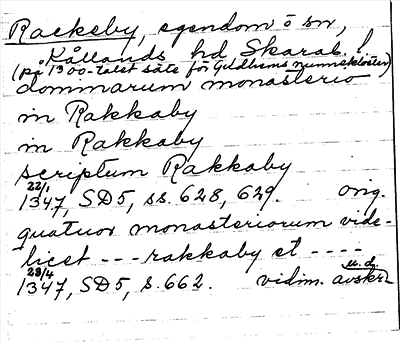 Rackeby, egendom o sn,
Kållands hd Skarab. l.
(på 1300-talet säte för Gudhems nunnekloster)
dominarum monasterio
in Rakkaby
in Rakkaby
scriptum Rakkaby
22/1
1347, SD5, ss. 628, 629. orig.
quatuor monasteriorum vide-
licet --- rakkaby et ----
u. d.
28/4
1347, SD5, s. 662. vidim. avskr.